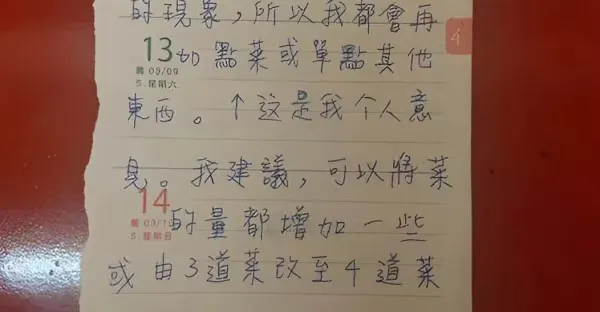 的現象，所以我都會再
4
13 加點菜或單點其他
農 09/09
5.星期六
東西。↑这是我个人意
見。我建議，可以將菜
14
農 09/10
5.星期日
的量都增加一些
或由3道菜改至4道菜